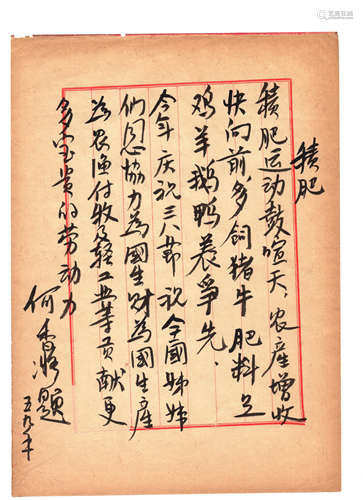 积肥
积肥运动鼓喧天，农产增收
快向前，多饲猪牛肥料足
鸡羊鹅鸭养争先、
今年庆祝三八节祝全国姊妹
们同心協力為國生财為國生產
為农渔付收及轻工业等贡献更
多宝贵的劳动力
何香凝題
五九年